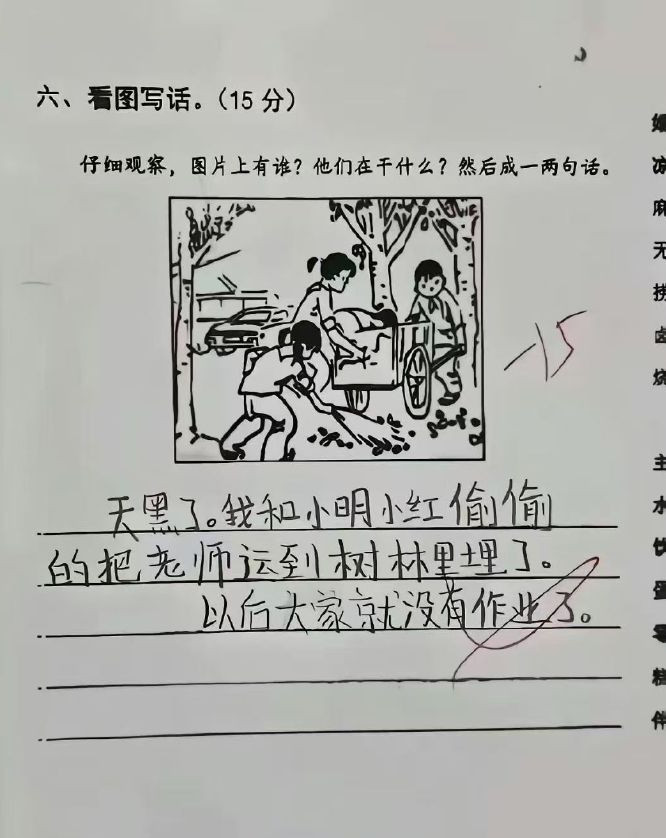 六、看图写话。（15分）
仔细观察，图片上有谁？他们在干什么？然后成一两句话。
-15
天黑了。我和小明小红偷偷
的把老师运到树林里埋了。
以后大家就没有作业了。
无
主
水
蛋
糕
伴